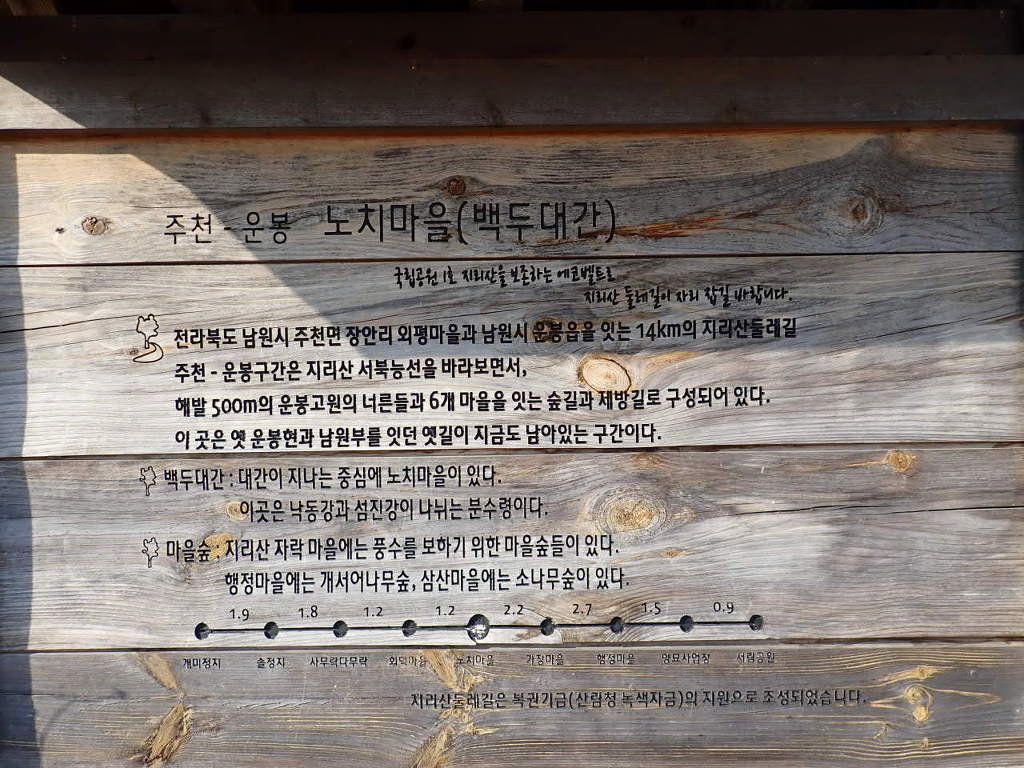 주천 - 운봉 노치마을(백두대간)
국립공원 1호 지리산을 보존하는 에코벨트로
지리산 둘레길이 자리 잡길 바랍니다.
전라북도 남원시 주천면 장안리 외평마을과 남원시 운봉읍을 잇는 14km의 지리산둘레길
주천 - 운봉구간은 지리산 서북능선을 바라보면서,
해발 500m의 운봉고원의 너른들과 6개 마을을 잇는 숲길과 제방길로 구성되어 있다.
이 곳은 옛 운봉현과 남원부를 잇던 옛길이 지금도 남아있는 구간이다.
백두대간 : 대간이 지나는 중심에 노치마을이 있다.
이곳은 낙동강과 섬진강이 나뉘는 분수령이다.
마을숲 : 지리산 자락 마을에는 풍수를 보하기 위한 마을숲들이 있다.
행정마을에는 개서어나무숲, 삼산마을에는 소나무숲이 있다.
1.9 1.8 1.2 1.2 2.2 2.7 1.5 0.9
개미정지 솔정지 사무락다무락 회덕마을 노치마을 가장마을 행정마을 양묘사업장 서림공원
지리산둘레길은 복권기금(산림청 녹색자금)의 지원으로 조성되었습니다.